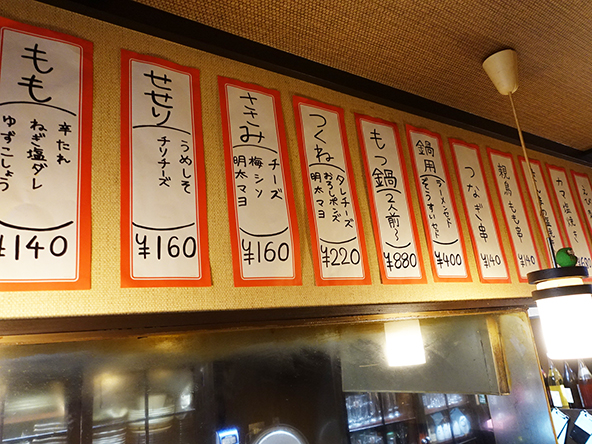 もも
辛たれ
ねぎ塩ダレ
ゆずこしょう
¥140
せせり
うめしそ
チリチーズ
¥160
ささみ
チーズ
梅シソ
明太マヨ
¥160
つくね
タレチーズ
おろしポンズ
明太マヨ
¥220
もつ鍋
2人前〜
¥880
鍋用
ラーメンセット
ぞうすいセット
¥400
つなぎ串
¥140
親鳥もも串
¥140
カマ塩焼き